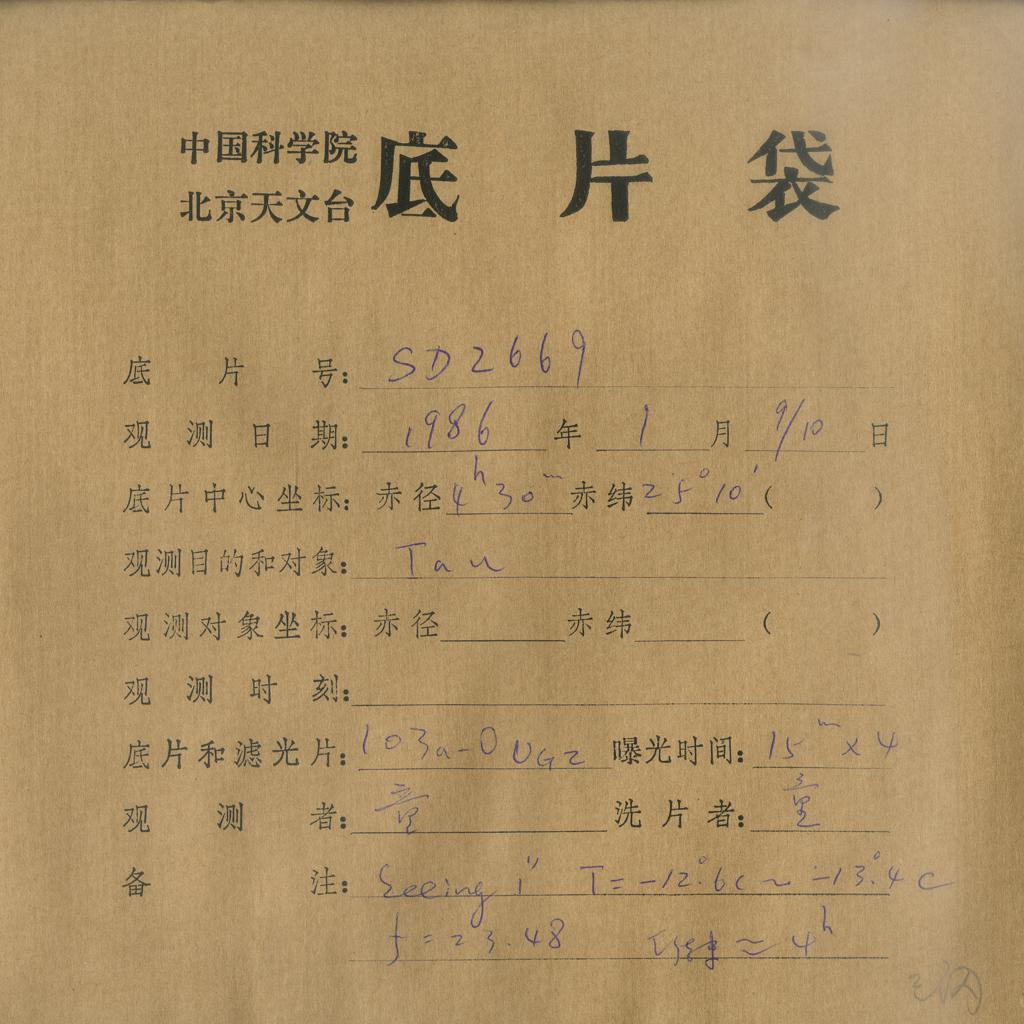 中国科学院
北京天文台
底片袋
底片号：SD2669
观测日期：1986年1月9/10日
底片中心坐标：赤径4ʰ30ᵐ赤纬25°10′（ ）
观测目的和对象：Tau
观测对象坐标：赤径 赤纬 （ ）
观测时刻：
底片和滤光片：103a-O UG2 曝光时间：15ᵐ×4
观测者：童 洗片者：童
备注：Seeing 1″ T=-12°.6c～-13°.4c
f=23.48 ≈4ʰ